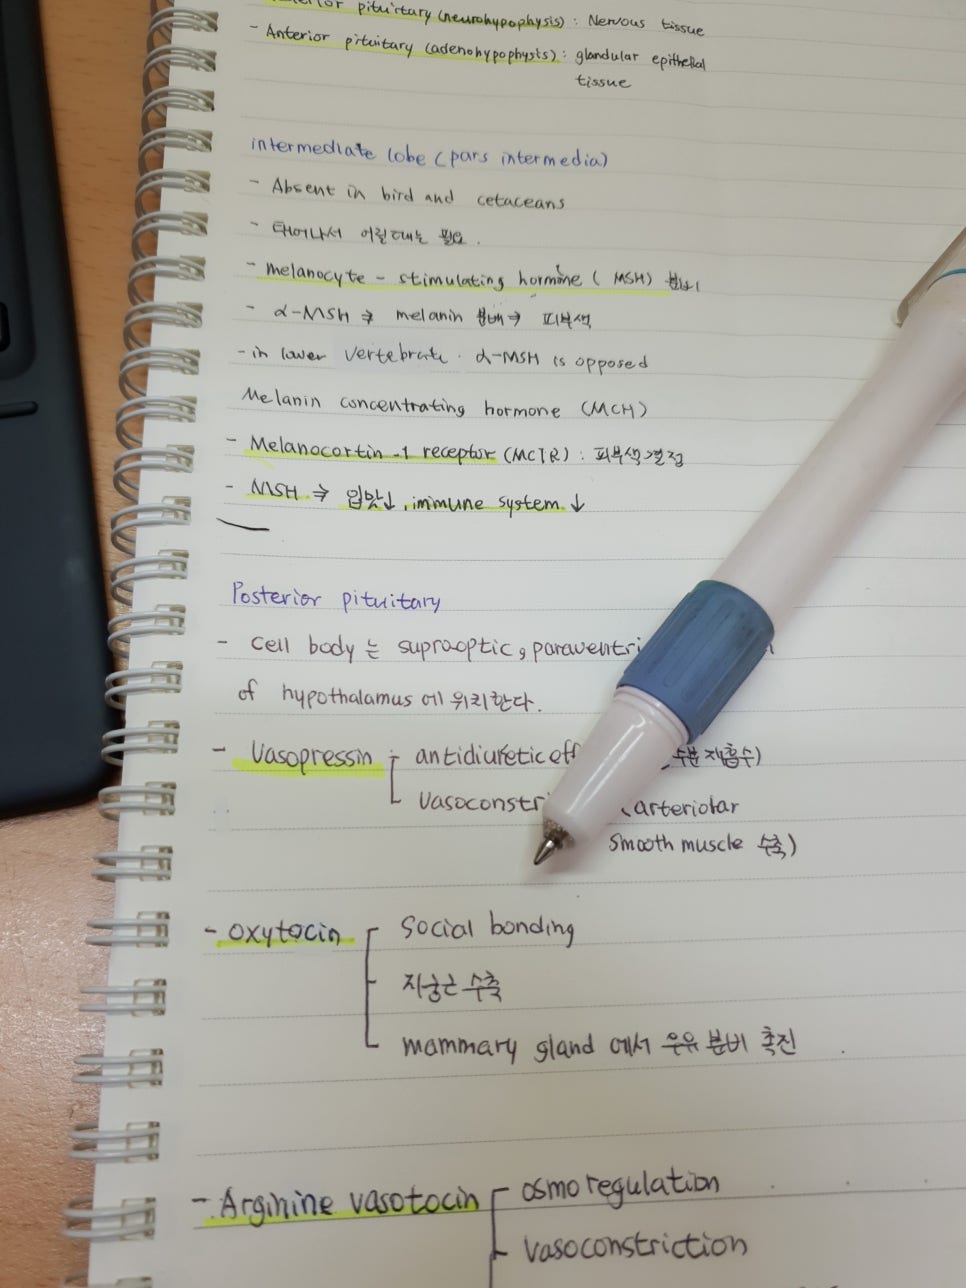 pituitary (neurohypophysis) : Nervous tissue
- Anterior pituitary (adenohypophysis) : glandular epithelial
tissue
intermediate lobe (pars intermedia)
- Absent in bird and cetaceans
- 태어나서 어릴때는 필요.
- melanocyte - stimulating hormone (MSH) 분비
- α-MSH ⇒ melanin 분비 ⇒ 피부색
- in lower vertebrate. α-MSH is opposed
Melanin concentrating hormone (MCH)
- Melanocortin -1 receptor (MC1R) : 피부색 결정
- MSH ⇒ 입맛↓, immune system ↓
Posterior pituitary
- cell body 는 supraoptic, paraventri
of hypothalamus 에 위치한다.
- Vasopressin antidiuretic eff 수분 재흡수)
vasoconstri (arteriolar
smooth muscle 수축)
- oxytocin social bonding
자궁근 수축
mammary gland 에서 우유 분비 촉진
- Arginine vasotocin osmoregulation
vasoconstriction